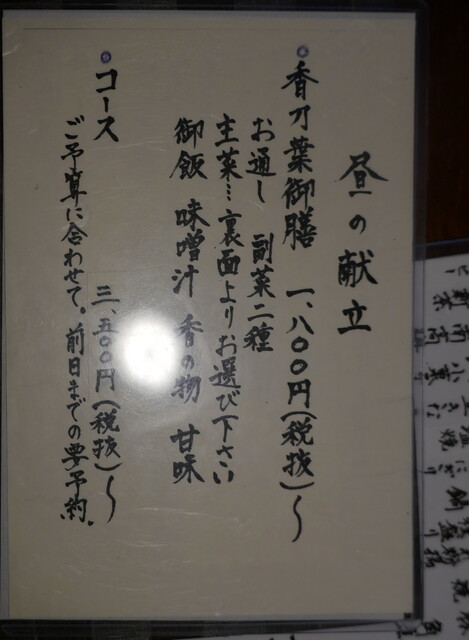 昼の献立
香刀葉御膳 一、八〇〇円(税抜)〜
お通し 副菜二種
主菜…裏面よりお選び下さい
御飯 味噌汁 香の物 甘味
コース 三、五〇〇円(税抜)〜
ご予算に合わせて。前日までの要予約。